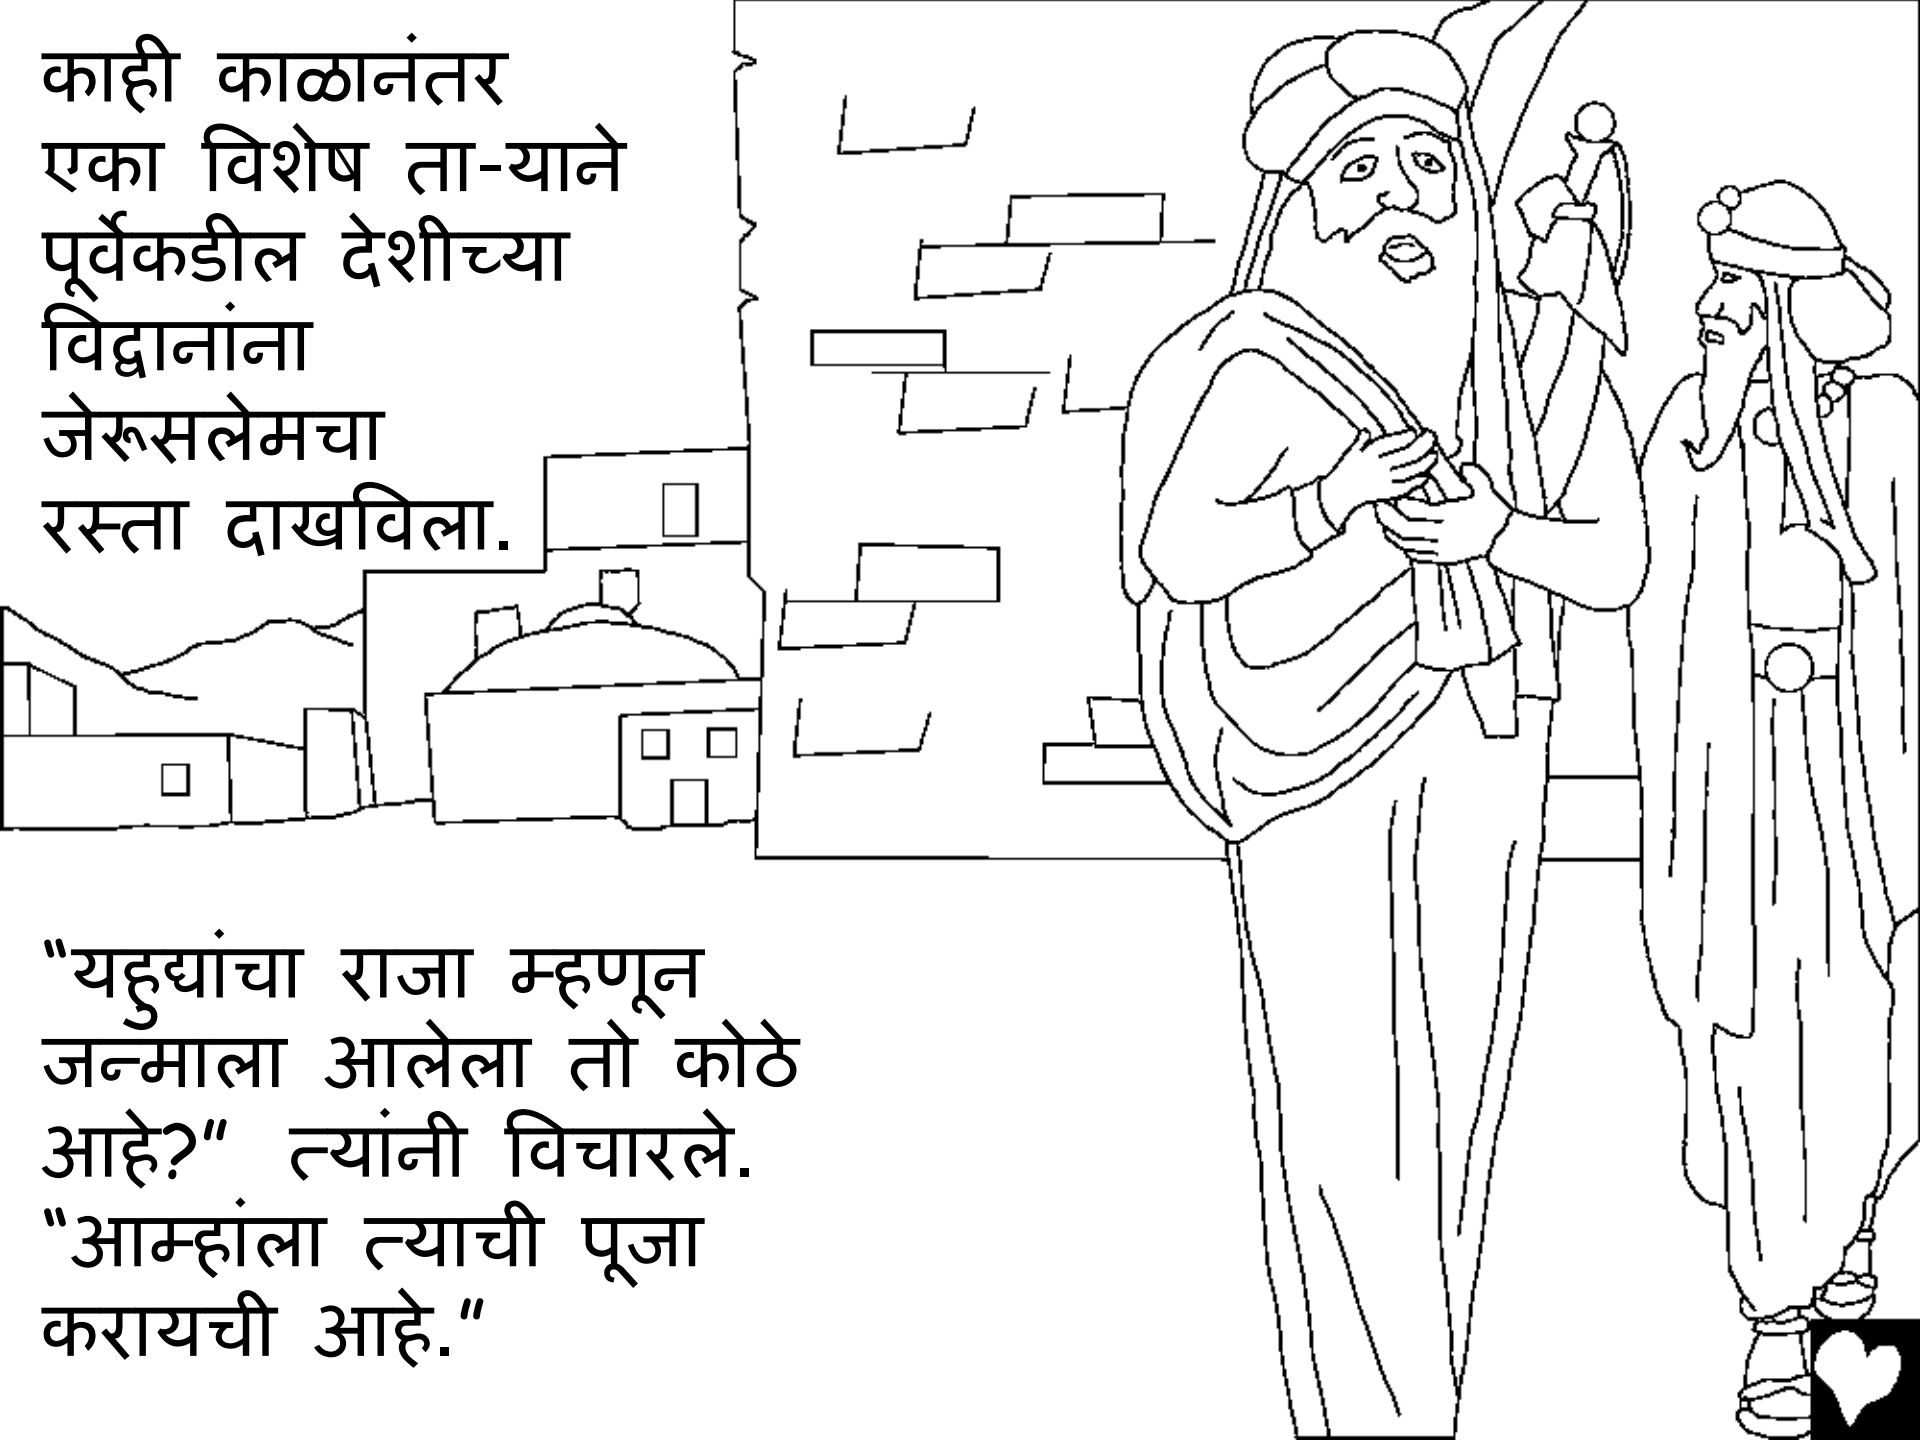 काही काळानंतर
एका विशेष ता-याने
पूर्वेकडील देशीच्या
विद्वानांना
जेरूसलेमचा
रस्ता दाखविला.
"यहुद्यांचा राजा म्हणून
जन्माला आलेला तो कोठे
आहे?" त्यांनी विचारले.
"आम्हांला त्याची पूजा
करायची आहे."